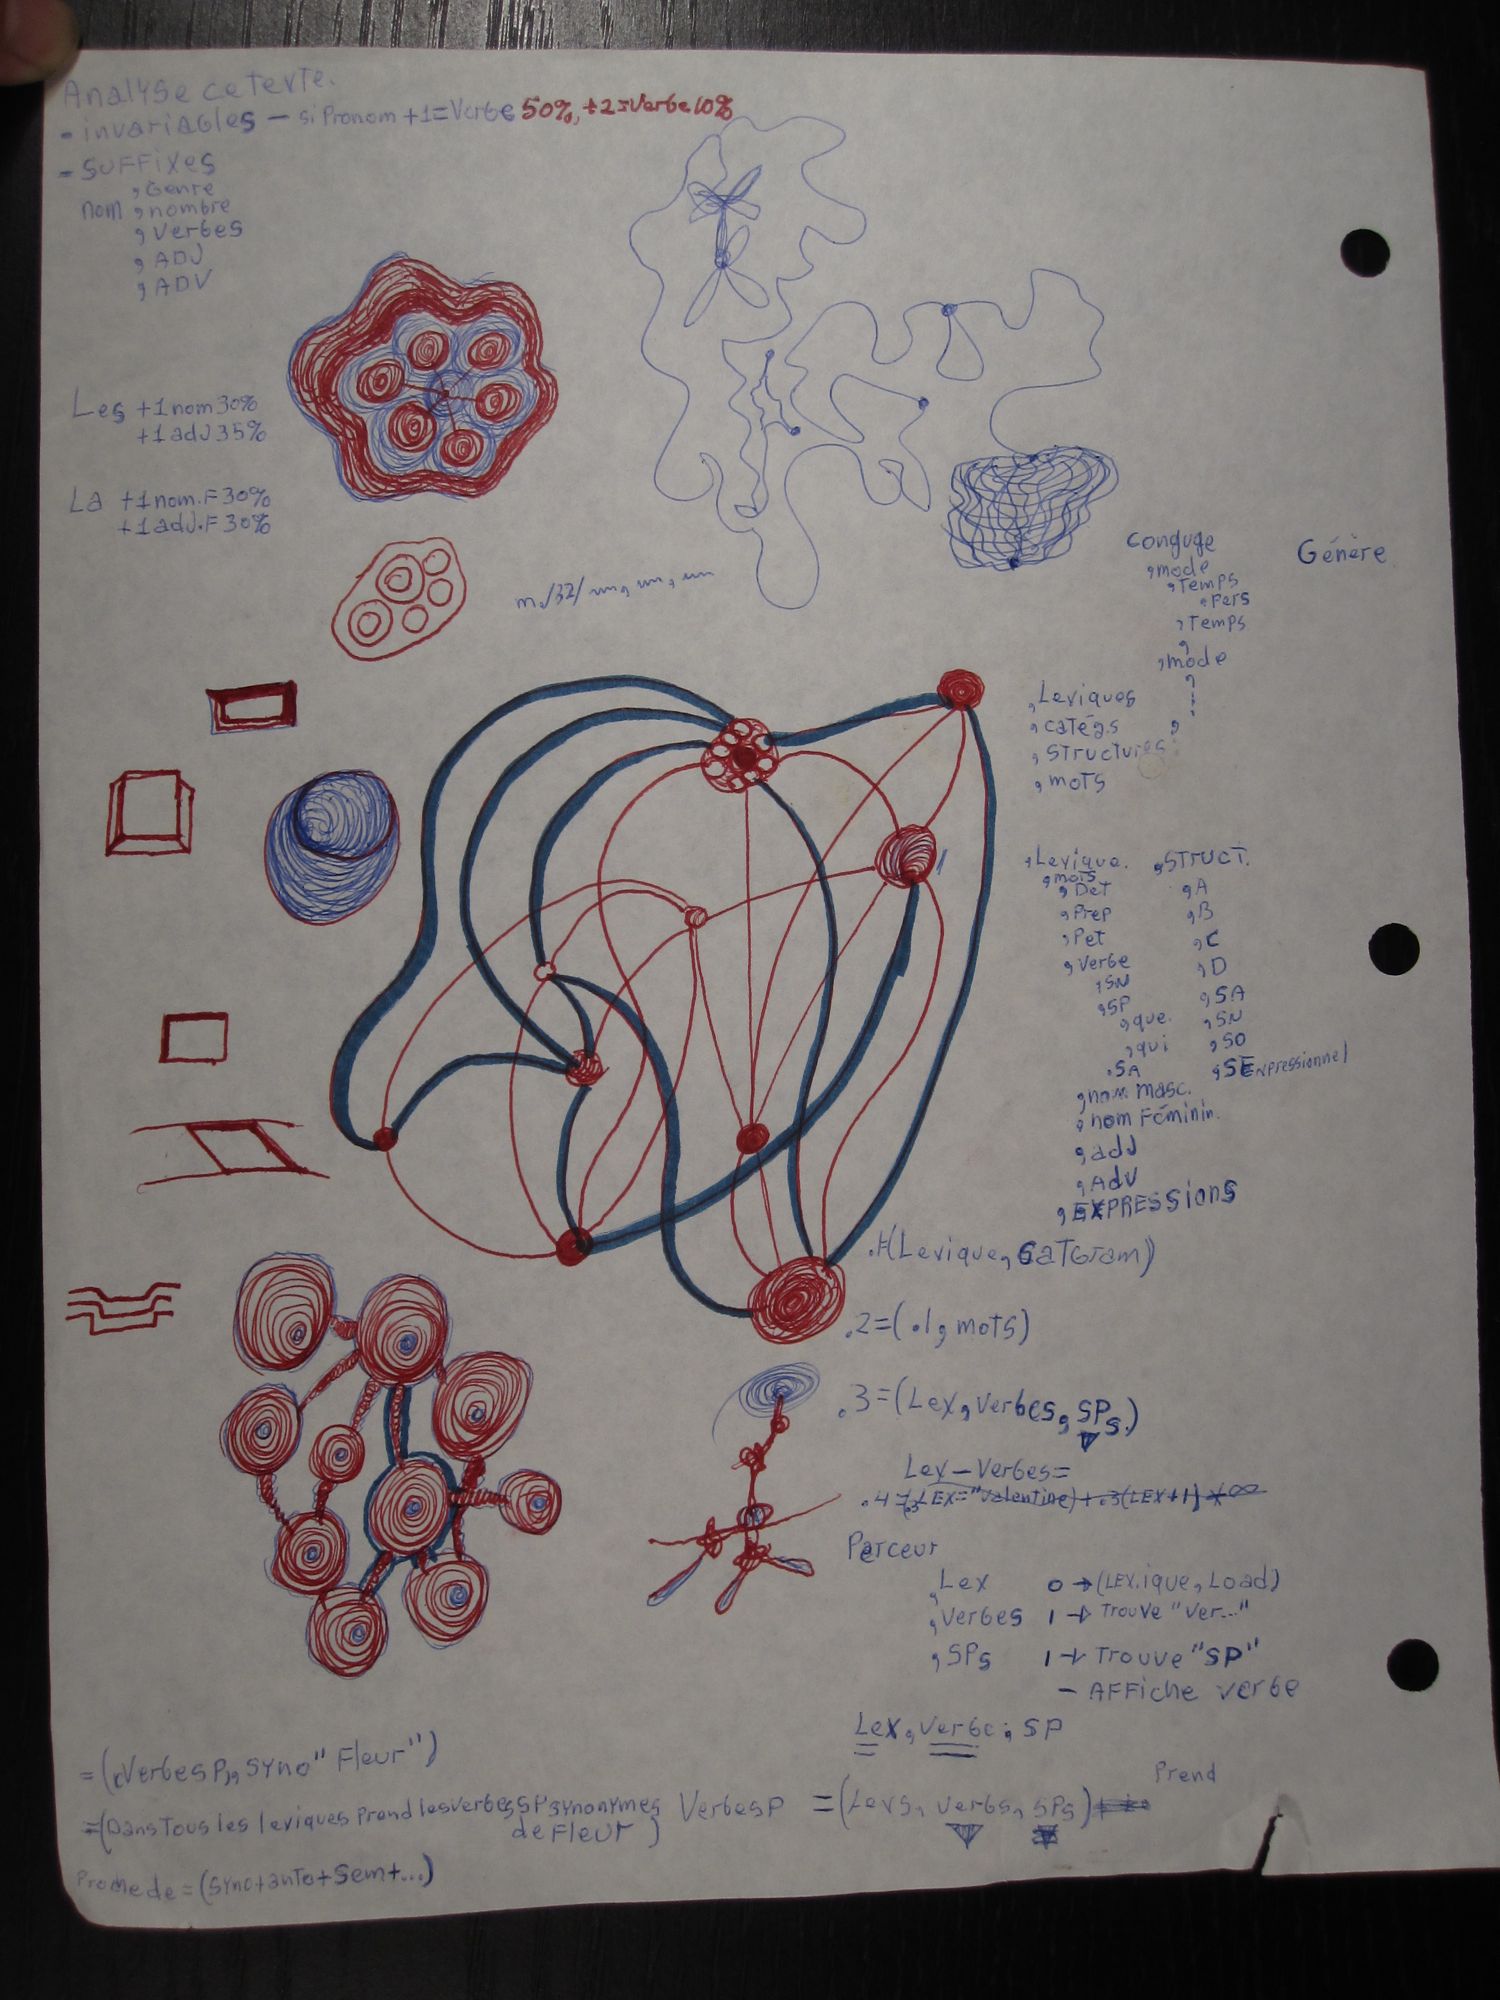 Analyse ce texte.
- invariables - si Pronom +1=Verbe 50%, +2=Verbe 10%
- suffixes
, Genre
nom , nombre
, verbes
, ADJ
, ADV
Les +1 nom 30%
+1 adj 35%
La +1 nom.F 30%
+1 adj.F 30%
Conguge
Génère
, mode
, Temps
, Pers
, Temps
,
, mode
, Lexiques
, catégs
, Structures
, mots
, Lexique. , STRUCT.
, mots
, Det , A
, Prep , B
, Pet , C
, verbe , D
, SN
, SP , SA
, que. , SN
, qui , SO
. SA , SExpressionnel
, nom masc.
, nom Féminin.
, adJ
, Adv
, EXPRESSIONS
.1(Lexique, CatGram)
.2=(.1, mots)
.3=(Lex, verbes, SPs.)
Lex - Verbes=
.4=.3(LEX="Valentine)+.3(LEX+1)*∞
Parceur
, Lex 0 → (LEX.ique, Load)
, verbes 1 → Trouve "ver..."
, SPs 1 → Trouve "SP"
- AFFiche verbe
Lex, verbe, SP
=(xVerbesP,, syno "Fleur")
Prend
=(Dans Tous les lexiques Prend les verbes SP synonymes
de Fleur)
VerbesP =(Lexs, verbs, SPs)
Promede=(syno+anto+Sem+...)